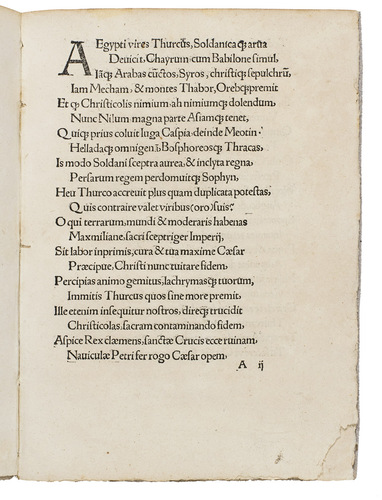 AEgypti vires Thurcus, Soldanica q; arua
Deuicit, Chayrum cum Babilone simul,
Iāq; Arabas cūctos, Syros, christiq; sepulchrū,
Iam Mecham, & montes Thabor, Orebq; premit
Et q; Christicolis nimium ah nimiumq; dolendum,
Nunc Nilum magna parte Asiamq; tenet,
Quiq; prius coluit iuga Caspia deinde Meotin
Helladaq; omnigenū, Bosphoreosq; Thracas,
Is modo Soldani sceptra aurea, & inclyta regna,
Persarum regem perdomuitq; Sophyn,
Heu Thurco accreuit plus quam duplicata potestas,
Quis contraire valet viribus (oro) suis?
O qui terrarum, mundi & moderaris habenas
Maxmiliane, sacri sceptriger Imperij,
Sit labor inprimis, cura & tua maxime Cæsar
Præcipue, Christi nunc tuitare fidem,
Percipias animo gemitus, lachrymasq; tuorum,
Immitis Thurcus quos sine more premit,
Ille etenim insequitur nostros, direq; trucidit
Christicolas, sacram contaminando fidem,
Aspice Rex clæmens, sanctæ Crucis ecce ruinam,
Nauiculæ Petri fer rogo Cæsar opem,
A ij